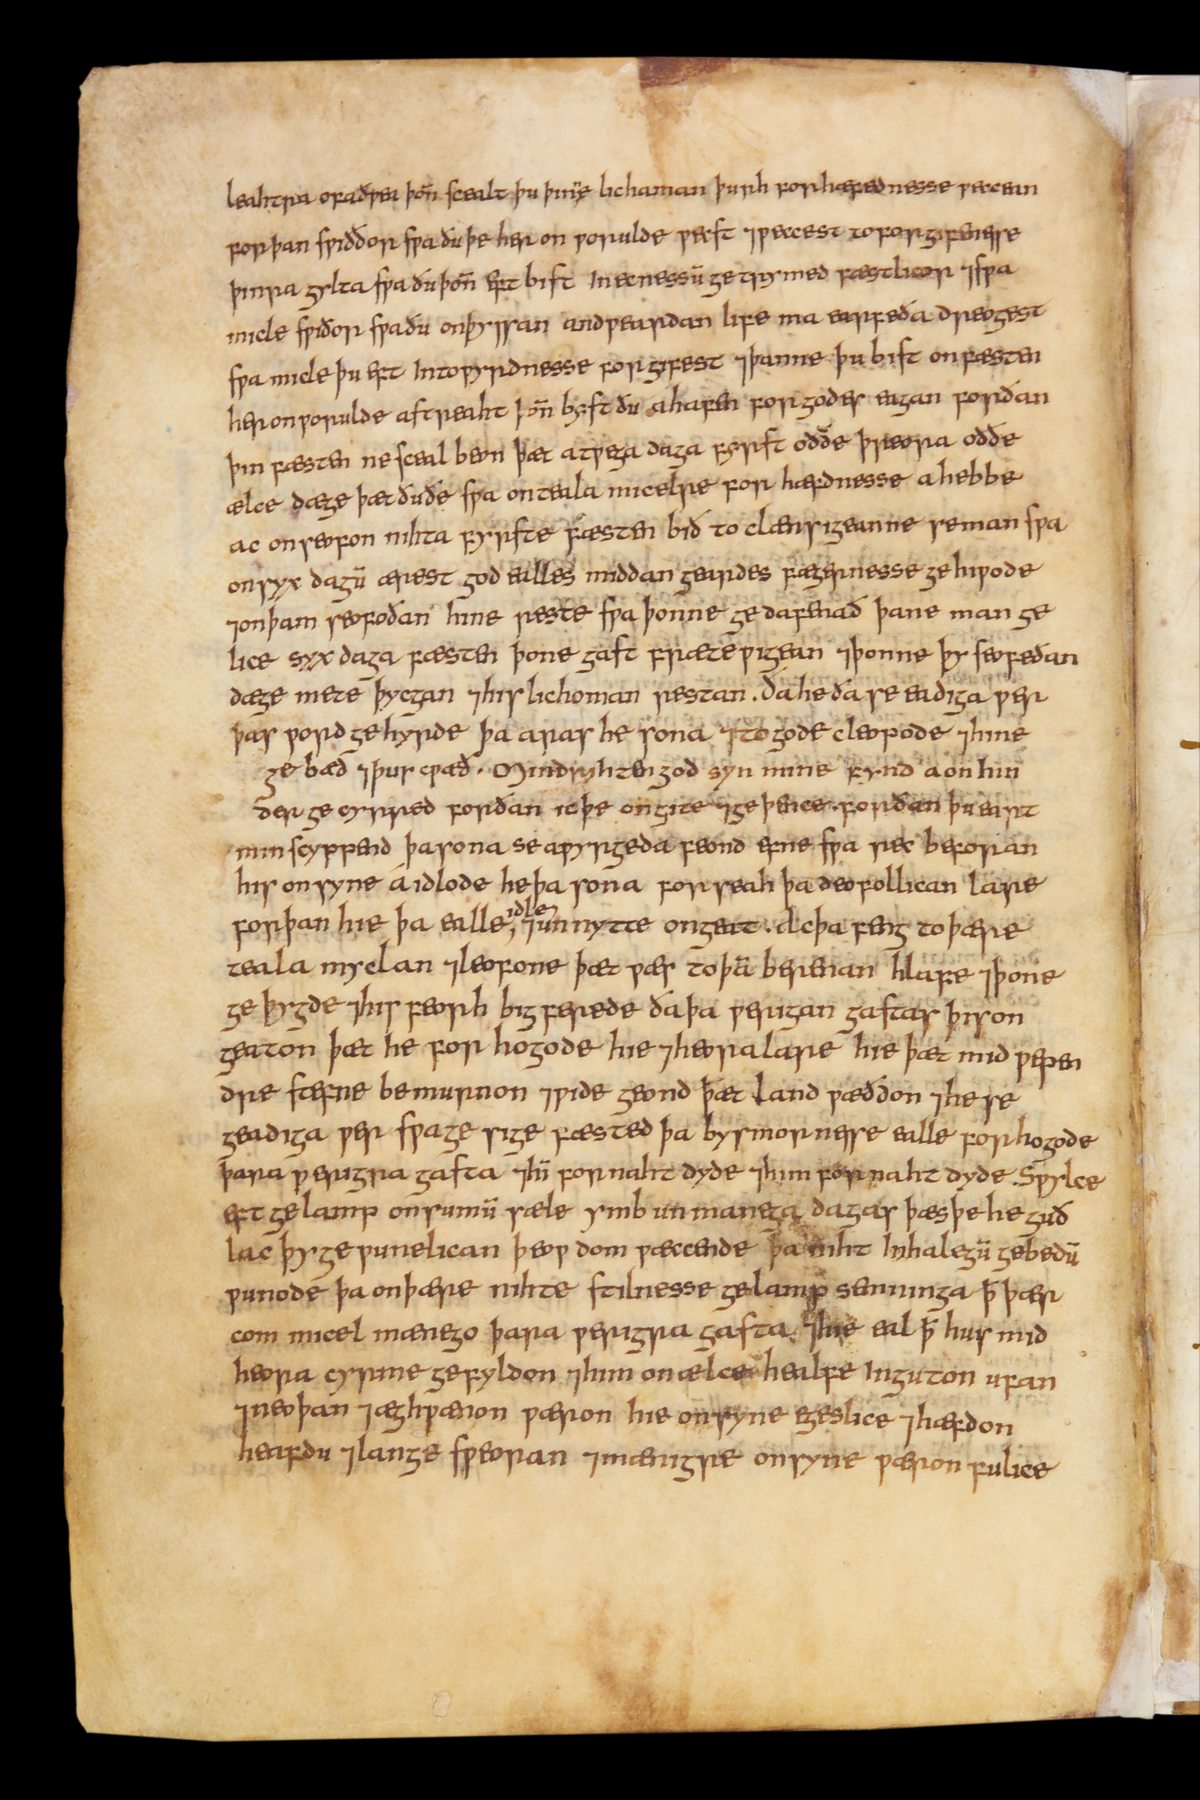 leahtra ofaðƿea þoñ scealt þu þinꝛe lichaman þurh forhæfednesse ƿecean
forþan sƿiððor sƿa ðu þe her on ƿorulde ƿecst ⁊ ƿecest to forgifenesse
þinra gylta sƿa ðu þoñ eft bist In ecnessū getrymed fæstlicor ⁊ sƿa
micle sƿiðor sƿa ðu on þyssan andƿeardan life ma earfeða dreogest
sƿa micle þu eft Intoƿyrdnesse forgifest ⁊ þanne þu bist on fæsten
her on ƿorulde astreaht þoñ byst ðu ahafen for godes eagan forðan
þin fæsten ne sceal beon þæt a tƿega daga fyrst oððe þreora oððe
ælce dæge þæt ðu ðe sƿa on teala micelre for hæfdnesse ahebbe
ac on seofon nihta fyrste fæsten bið to clænsigeanne seman sƿa
on syx dagū ærest god ealles middan geardes fægernesse gehiƿode
⁊ on þam seofoðan hine reste sƿa þonne gedafenað þane man ge
lice syx daga fæsten þone gast frætƿigean ⁊ þonne þy seofeðan
dæge mete þycgan ⁊ his lichoman restan. ða he ða se eadiga ƿer
þas ƿord gehyrde þa aras he sona ⁊ to gode cleopode ⁊ hine
gebæd ⁊ þus cƿæð. Min dryhten god syn mine fynd a on hin
der gecyrred forðan ic þe ongite ⁊ geþence. forðan þu eart
min scyppend þa sona se aƿyrgeda feond efne sƿa rec beforan
his onsyne aidlode he þa sona forseah þa deofollican lare
forþan hie þa ealle idle ⁊ unnytte ongeat. Ac þa feng to þære
teala myclan ⁊ leofone þæt ƿæs to þā berenan hlafe ⁊ þone
geþygde ⁊ his feorh bigferede ða þa ƿerigan gastas þis on
geaton þæt he for hogode hie ⁊ heora lare hie þæt mid ƿepen
dre stefne bemurnon ⁊ ƿide geond þæt land ƿæððon ⁊ he se
geadiga ƿer sƿa gesige fæsted þa bysmornesse ealle forhogode
þara ƿerigra gasta ⁊ hī for naht dyde ⁊ him for naht dyde. Sƿylce
eft gelamp on sumū sæle ymb unmanega dagas þæs þe he guð
lac þy geƿunelican þeoƿdom ƿæccende þa niht In halegū gebedū
ƿunode þa on þære nihte stilnesse gelamp semninga ꝥ þær
com micel mænego þara ƿerigra gasta ⁊ hie eal ꝥ hus mid
heora cyrme gefyldon ⁊ him on ælce healfe Inguton ufan
⁊ neoþan ⁊ æghƿæron ƿæron hie on syne egeslice ⁊ hæfdon
heafdu ⁊ lange sƿeoran ⁊ mænigre onsyne ƿæron fulice